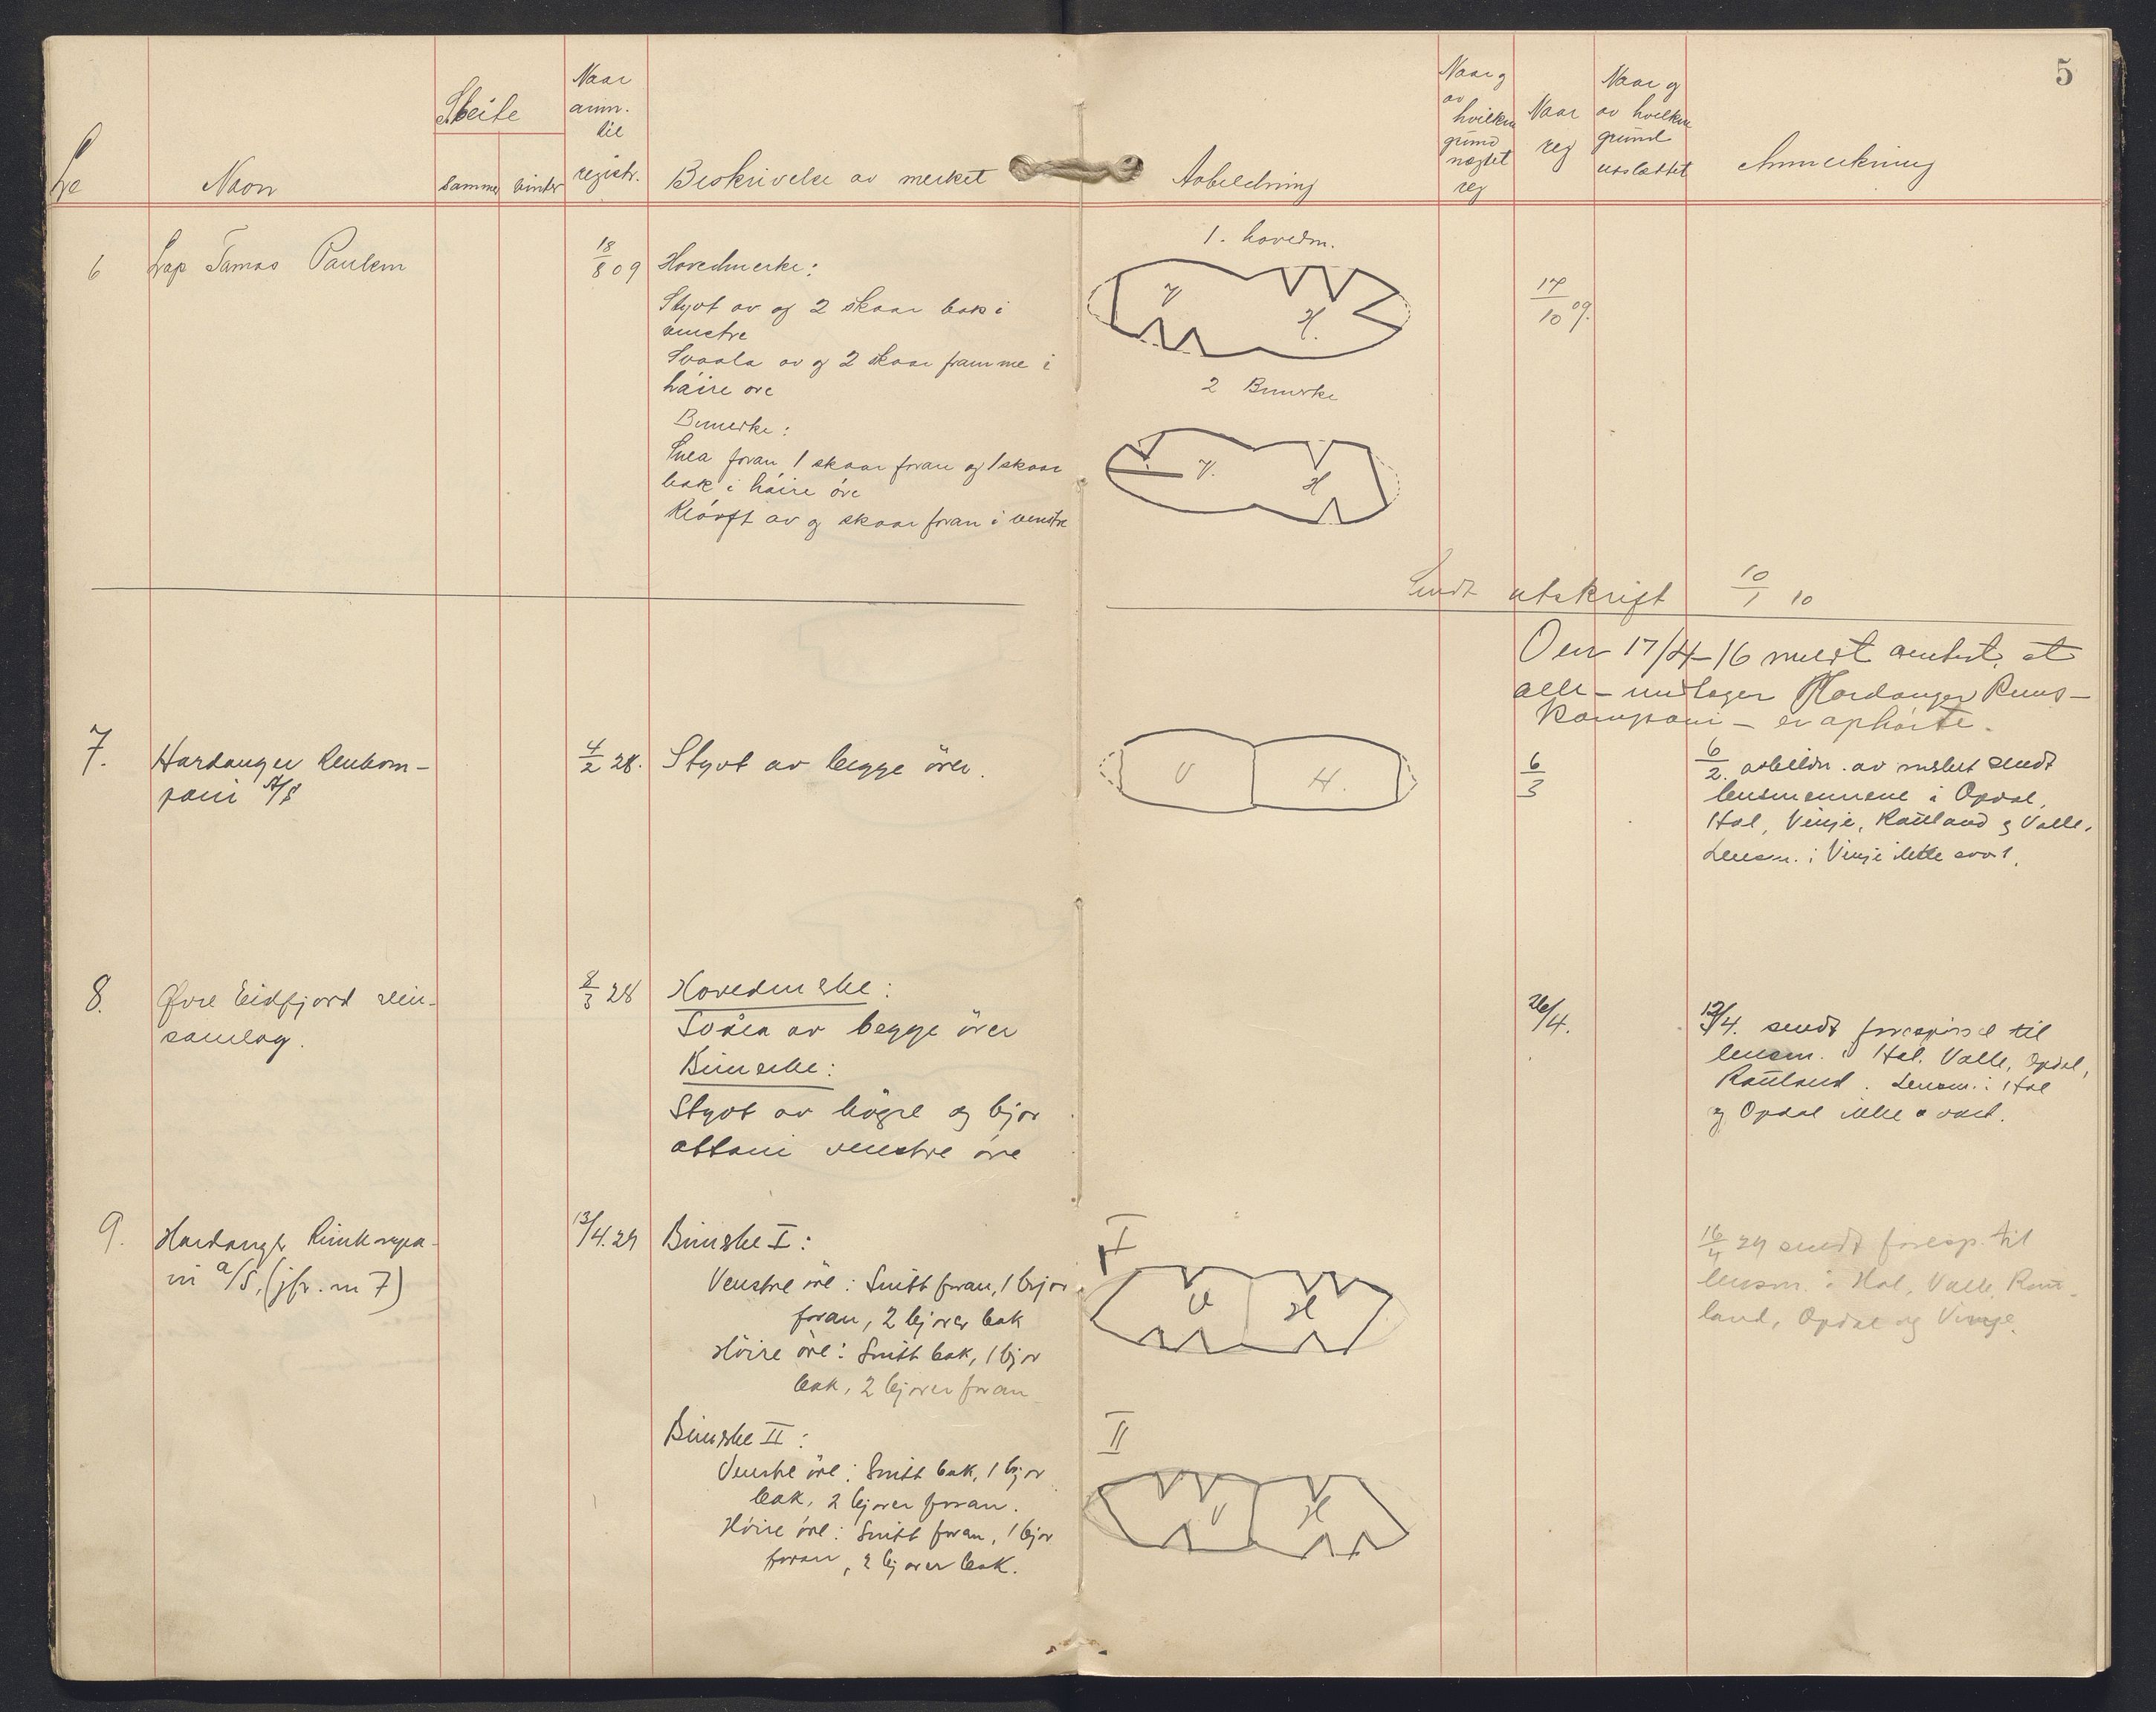 5
Lre
Navn
Beite
sommer
vinter
Naar
anm.
til
registr.
Beskrivelse av merket
Avbildning
Naar og
av
hvilken
grund
nægtet
reg
Naar
reg
Naar og
av hvilken
grund
utslættet
Anmerkning
6
Lap Tamas Paulsen
18/8 09
Hovedmerke:
Styvt av og 2 skaar bak i
venstre
Svaala av og 2 skaar framme i
höire öre
Bimerke:
foran 1 skaar foran og 1 skaar
bak i höire öre
Klöift av og skaar foran i venstre
1. hovedm.
V
H.
2 Bimerke
V.
H
17/10 09.
Sendt utskrift 10/1 10
Den 17/4-16 meldt amtet, at
alle - undtager Hardanger Rens-
kompani - er ophörte.
7.
Hardanger Renkom-
pani A/S
4/2 28.
Styvt av begge örer.
V
H.
6/3
6/2. avbildn. av merket sendt
lensmennene i Opdal,
Hol, Vinje, Rauland og Valle.
Lensm. i Vinje ikke svart.
8.
Øvre Eidfjord rein-
samlag.
8/3 28
Hovedmerke:
av begge örer
Bimerke:
Styvt av högre og bjor
attani venstre öre
26/4.
12/4. sendt forespörsel til
lensm. i Hol. Valle, Opdal,
Rauland. Lensm. i Hol
og Opdal ikke svart.
9.
Hardanger Rinkompa-
ni a/S, (jfr. nr 7)
13/4.29
Bimerke I:
Venstre öre: Snitt foran, 1 bjor
foran, 2 bjorer bak
Höire öre: Snitt bak, 1 bjor
bak, 2 bjorer foran
Bimerke II:
Venstre öre: Snitt bak, 1 bjor
bak, 2 bjorer foran.
Höire öre: Snitt foran, 1 bjor
foran, 2 bjorer bak.
I
V
H
II
V
H
16/4 29 sendt foresp. til
lensm. i Hol, Valle, Rau-
land, Opdal og Vinje.